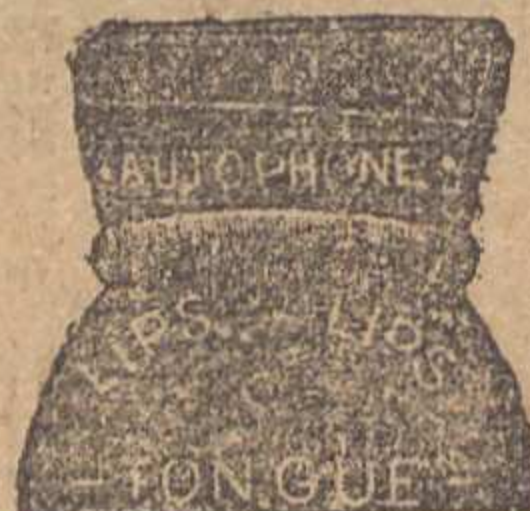 AUTOPHONE
LIPS LIPS
- TONGUE -